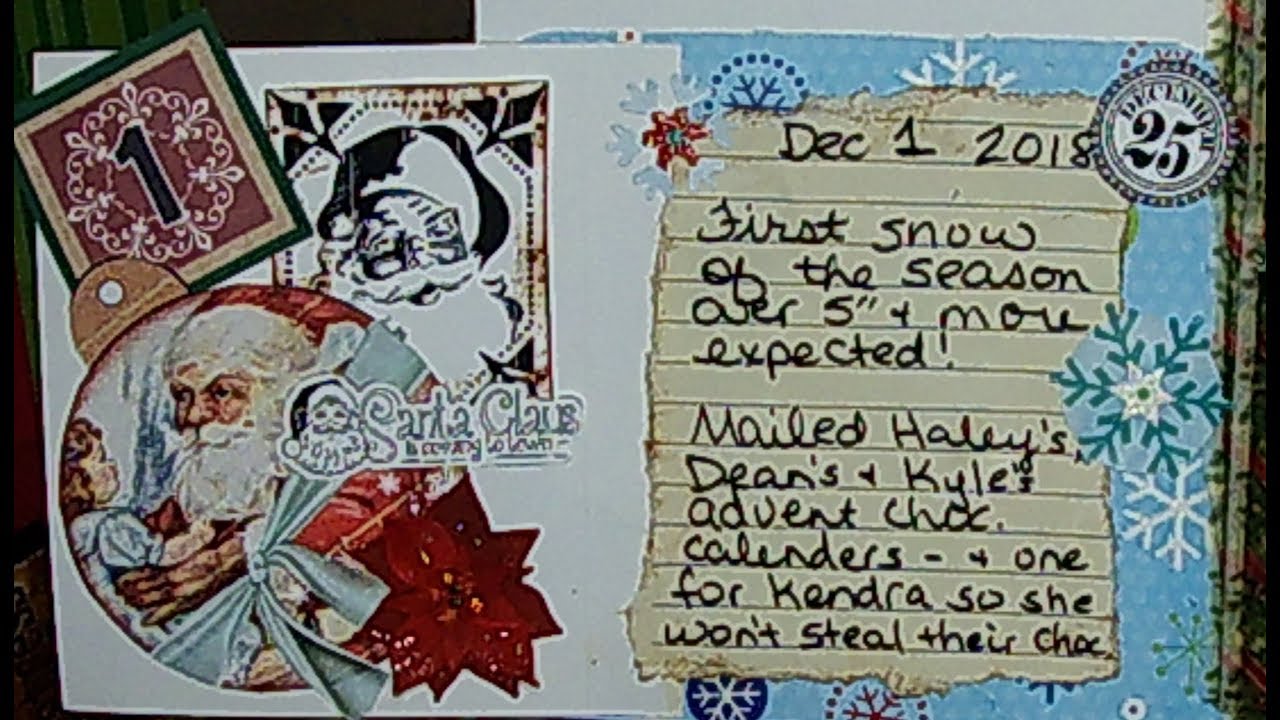 1
Santa Claus
is coming to town
DECEMBER
25
Dec 1 2018
First snow
of the season
over 5" + more
expected!
Mailed Haley's,
Dean's + Kyle's
advent choc.
calenders - + one
for Kendra so she
won't steal their choc.